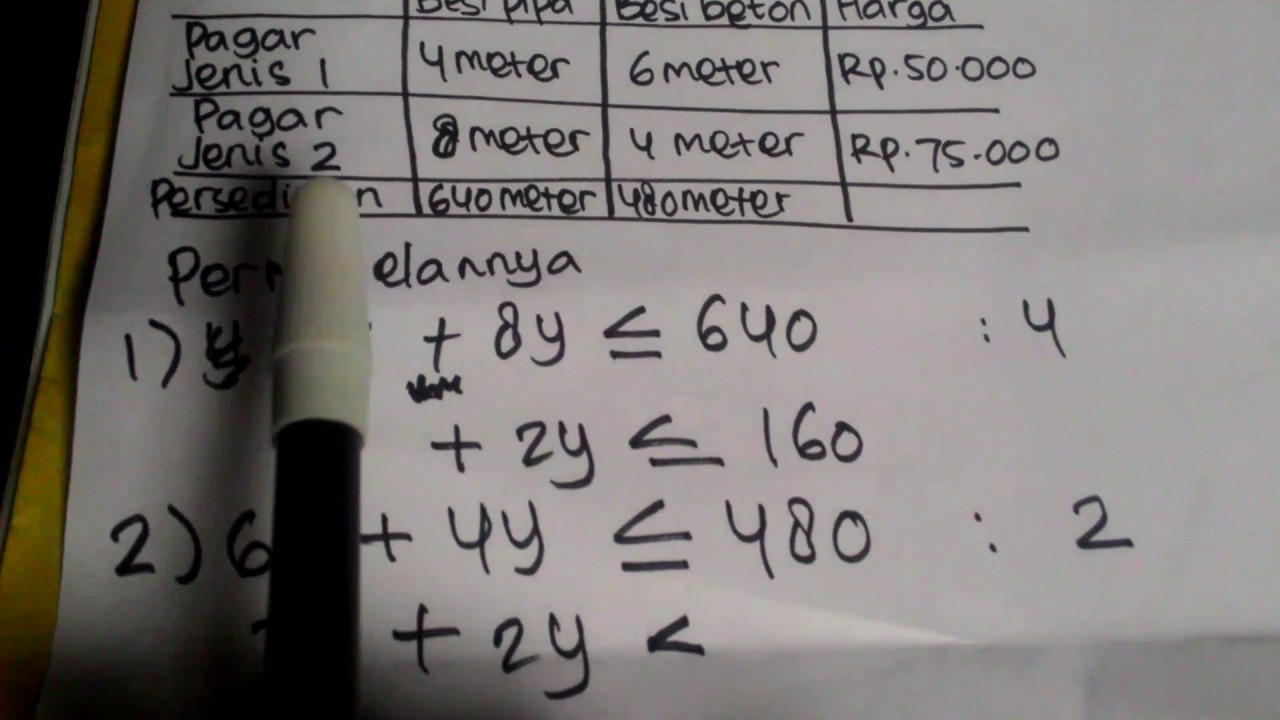 Besi pipa Besi beton Harga
Pagar Jenis 1 4 meter 6 meter Rp.50.000
Pagar Jenis 2 8 meter 4 meter Rp.75.000
640 meter 480 meter
1) + 8y ≤ 640 : 4
+ 2y ≤ 160
2) 6 + 4y ≤ 480 : 2
+ 2y <